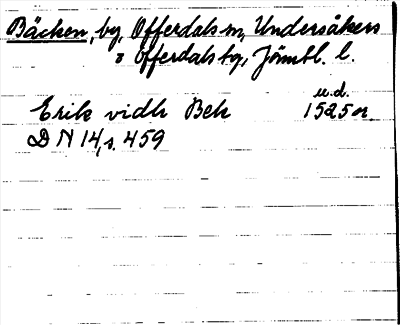 Bäcken, by, Offerdals sn, Undersåkers
o Offerdals tg, Jämtl. l.
u.d.
Erik vidh Bek 1525 or.
DN 14, s. 459